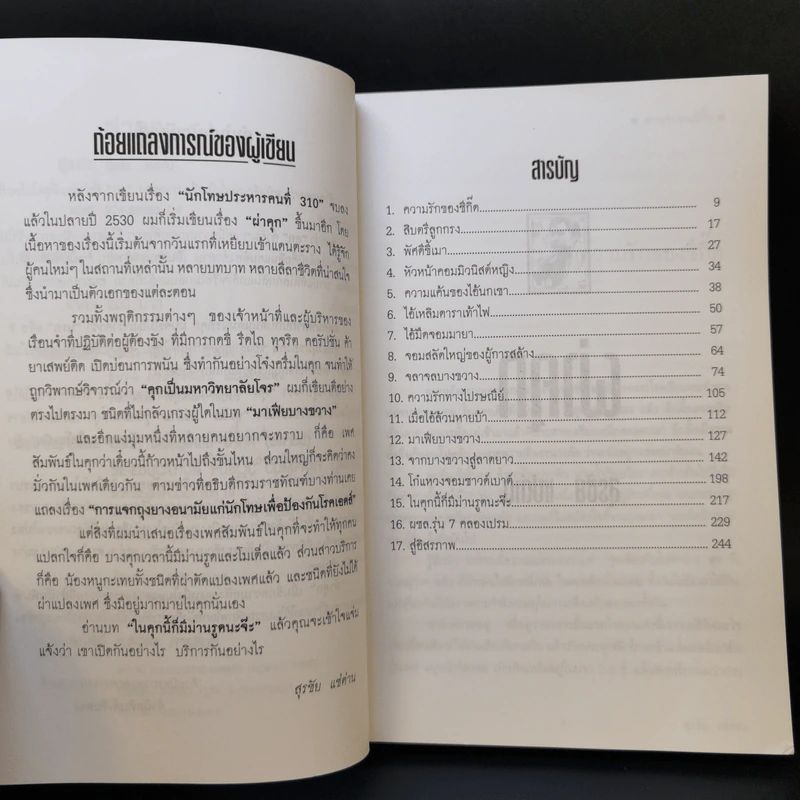 ถ้อยแถลงการณ์ของผู้เขียน
หลังจากเขียนเรื่อง “นักโทษประหารคนที่ 310” จบลง
แล้วในปลายปี 2530 ผมก็เริ่มเขียนเรื่อง “ผ่าคุก” ขึ้นมาอีก โดย
เนื้อหาของเรื่องนี้เริ่มต้นจากวันแรกที่เหยียบเข้าแดนตะราง ได้รู้จัก
ผู้คนใหม่ๆ ในสถานที่เหล่านั้น หลายบทบาท หลายลีลาชีวิตที่น่าสนใจ
ซึ่งนำมาเป็นตัวเอกของแต่ละตอน
รวมทั้งพฤติกรรมต่างๆ ของเจ้าหน้าที่และผู้บริหารของ
เรือนจำที่ปฏิบัติต่อผู้ต้องขัง ที่มีการกดขี่ รีดไถ ทุจริต คอรัปชั่น ค้า
ยาเสพย์ติด เปิดบ่อนการพนัน ซึ่งทำกันอย่างโจ๋งครึ่มในคุก จนทำให้
ถูกวิพากษ์วิจารณ์ว่า “คุกเป็นมหาวิทยาลัยโจร” ผมก็เขียนตีอย่าง
ตรงไปตรงมา ชนิดที่ไม่กลัวเกรงผู้ใดในบท “มาเฟียบางขวาง”
และอีกแง่มุมหนึ่งที่หลายคนอยากจะทราบ ก็คือ เพศ
สัมพันธ์ในคุกว่าเดี๋ยวนี้ก้าวหน้าไปถึงขั้นไหน ส่วนใหญ่ก็จะคิดว่าคง
มั่วกันในเพศเดียวกัน ตามข่าวที่อธิบดีกรมราชทัณฑ์บางท่านเคย
แถลงเรื่อง “การแจกถุงยางอนามัยแก่นักโทษเพื่อป้องกันโรคเอดส์”
แต่สิ่งที่ผมนำเสนอเรื่องเพศสัมพันธ์ในคุกที่จะทำให้ทุกคน
แปลกใจก็คือ บางคุกเวลานี้มีม่านรูดและโมเต็ลแล้ว ส่วนสาวบริการ
ก็คือ น้องหนูกะเทยทั้งชนิดที่ผ่าตัดแปลงเพศแล้ว และชนิดที่ยังไม่ได้
ผ่าแปลงเพศ ซึ่งมีอยู่มากมายในคุกนั่นเอง
อ่านบท “ในคุกนี้ก็มีม่านรูดนะจ๊ะ” แล้วคุณจะเข้าใจแจ่ม
แจ้งว่า เขาเปิดกันอย่างไร บริการกันอย่างไร
สุรชัย แซ่ด่าน
สารบัญ
1. ความรักของซิกี๊ด 9
2. สิบตรีลูกกรง 17
3. พัศดีขี้เมา 27
4. หัวหน้าคอมมิวนิสต์หญิง 34
5. ความแค้นของไอ้นกเขา 38
6. ไอ้เหลิมดาราเท้าไฟ 50
7. ไอ้มืดจอมมายา 57
8. จอมสลัดใหญ่ของผู้การสล้าง 64
9. จลาจลบางขวาง 74
10. ความรักทางไปรษณีย์ 105
11. เมื่อไอ้ล้วนหายบ้า 112
12. มาเฟียบางขวาง 127
13. จากบางขวางสู่ลาดยาว 142
14. โก๋แหวงจอมซาวด์เบาด์ 198
15. ในคุกนี้ก็มีม่านรูดนะจ๊ะ 217
16. ผชล.รุ่น 7 คลองเปรม 229
17. สู่อิสรภาพ 244